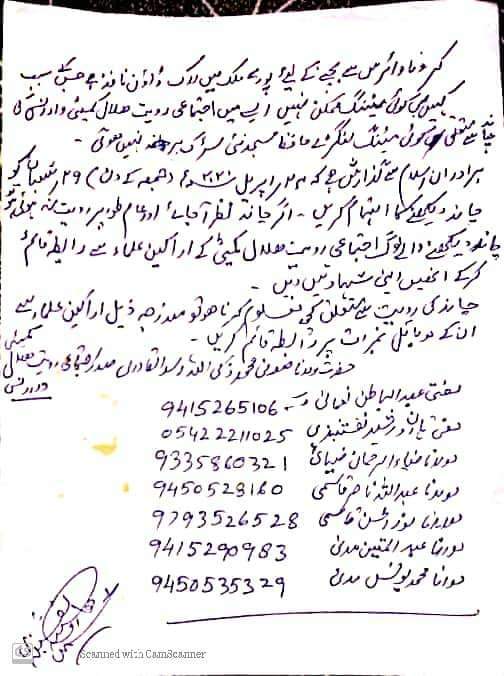 کرونا وائرس سے بچنے کے لیۓ پورے ملک میں لاک ڈاؤن نافذ ہے جس کے سبب
کہیں بھی کوئی میٹنگ ممکن نہیں ایسے میں اجتماعی رویت ھلال کمیٹی وارانسی کی
چاند سے متعلق کوئی میٹنگ لنگڑے حافظ مسجد نئی سڑک پر نہیں ہوگی -
برادران اسلام سے گذارش ہے کہ ۲۴ اپریل ۲۰۲۰ء (جمعہ کے دن) ۲۹ شعبان کو
چاند دیکھنے کا اہتمام کریں - اگر چاند نظر آجاۓ اور عام طور پر رویت نہ ہوئی ہو تو
چاند دیکھنے والے لوگ اجتماعی رویت ھلال کمیٹی کے اراکین علماء سے رابطہ قائم
کرکے انھیں اپنی شہادتیں دیں -
چاند کی رویت سے متعلق کچھ معلوم کرنا ھو تو مندرجہ ذیل اراکین علماء سے
ان کے موبائل نمبرات پر رابطہ قائم کریں -
حضرت مولانا صوفی محمد ذکی اللہ اسد القادری صدر اجتماعی رویت ھلال کمیٹی
وارانسی
مفتی عبد الباطن نعمانی 9415265106
مفتی ہارون رشید نقشبندی 05422211025
مولانا ضیاء الرحمان ضیائی 9335860321
مولانا عبد اللہ ناصر قاسمی 9450528160
مولانا قاسمی 9793526528
مولانا عبد المتین مدنی 9415290983
مولانا محمد یونس مدنی 9450535329
Scanned with CamScanner